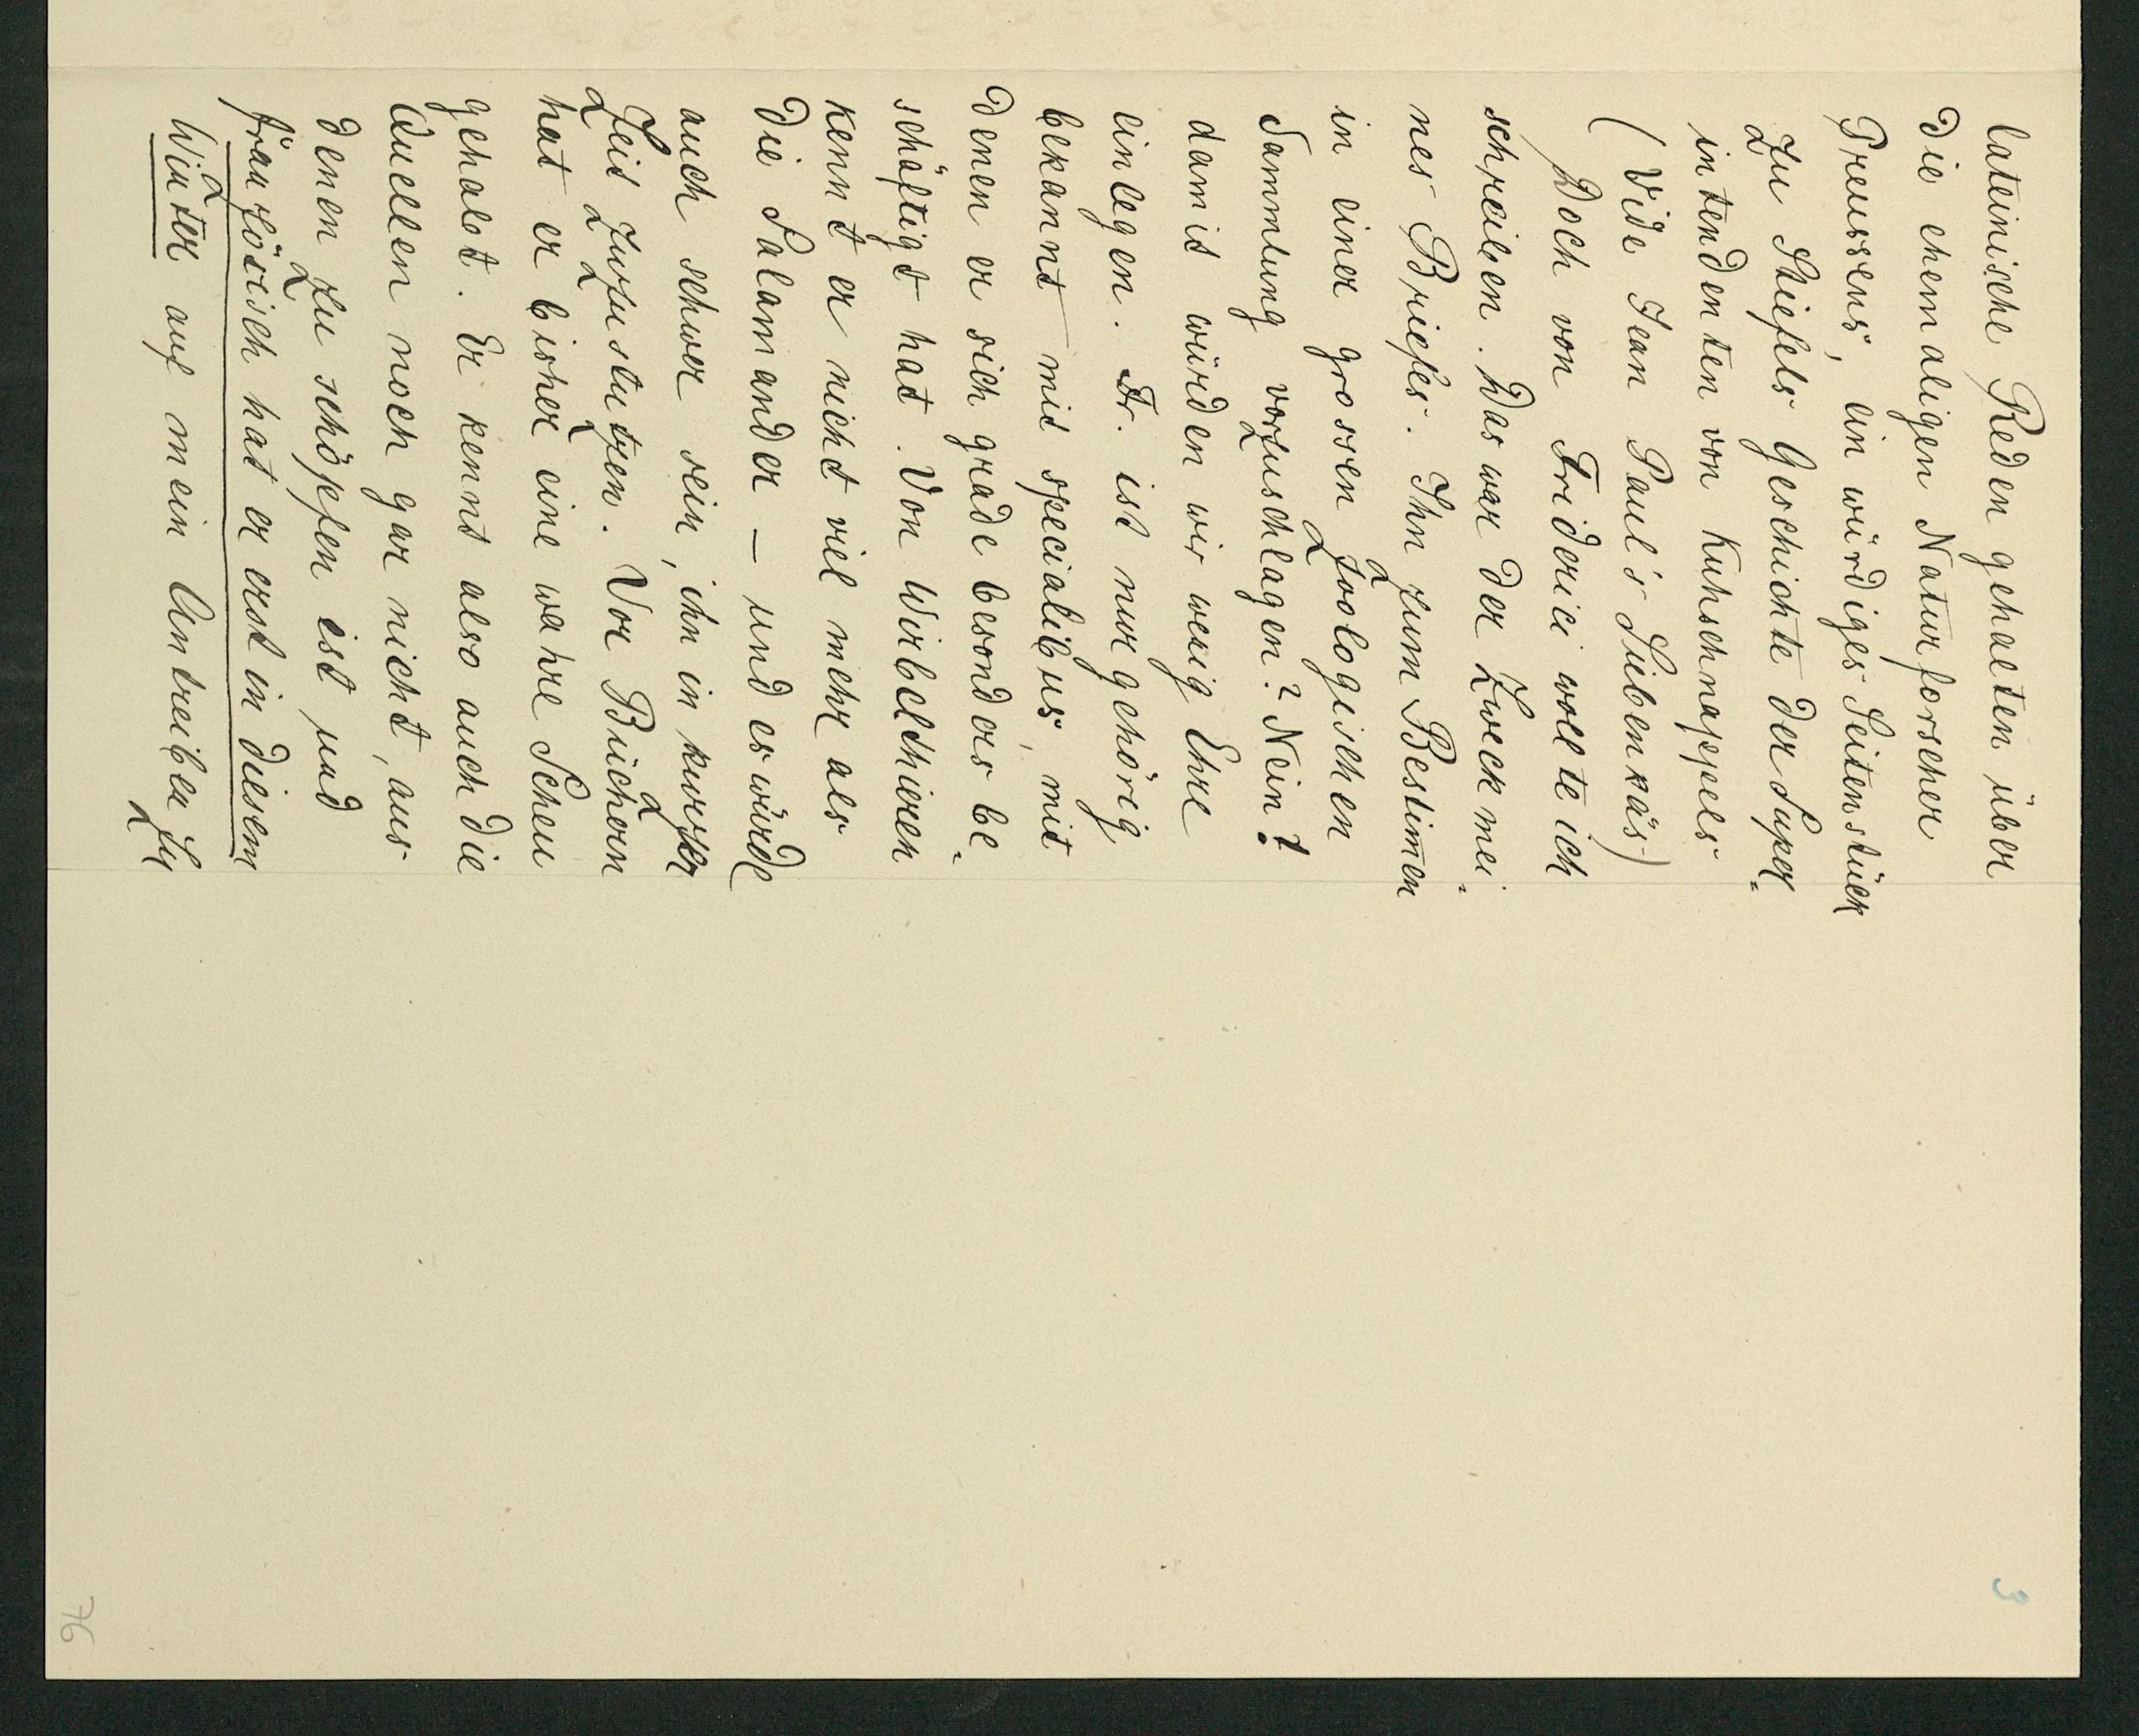 3
lateinische Reden gehalten über
die ehemaligen Naturforscher
Preussens, ein würdiges Seitenstück
zu Stiefels Geschichte der Super-
intendenten von Kuhschnappels
(Vide Jean Paul's Siebenkäs)
Doch von Friderici wollte ich
schreiben. Das war der Zweck mei-
nes Briefes. Ihn zum Bestim̄en
in einer grossen zoologischen
Sammlung vorzuschlagen? Nein!
damit würden wir wenig Ehre
einlegen. Fr. ist nur gehörig
bekannt mit specialibus, mit
denen er sich grade besonders be-
schäftigt hat. Von Wirbelthieren
kennt er nicht viel mehr als
die Salamander – und es würde
auch schwer sein, ihn in kurzer
Zeit zuzustutzen. Vor Büchern
hat er bisher eine wahre Scheu
gehabt. Er kennt also auch die
Quellen noch gar nicht, aus
denen zu schöpfen ist und
französisch hat er erst in diesem
Winter auf mein Antreiben zu
76